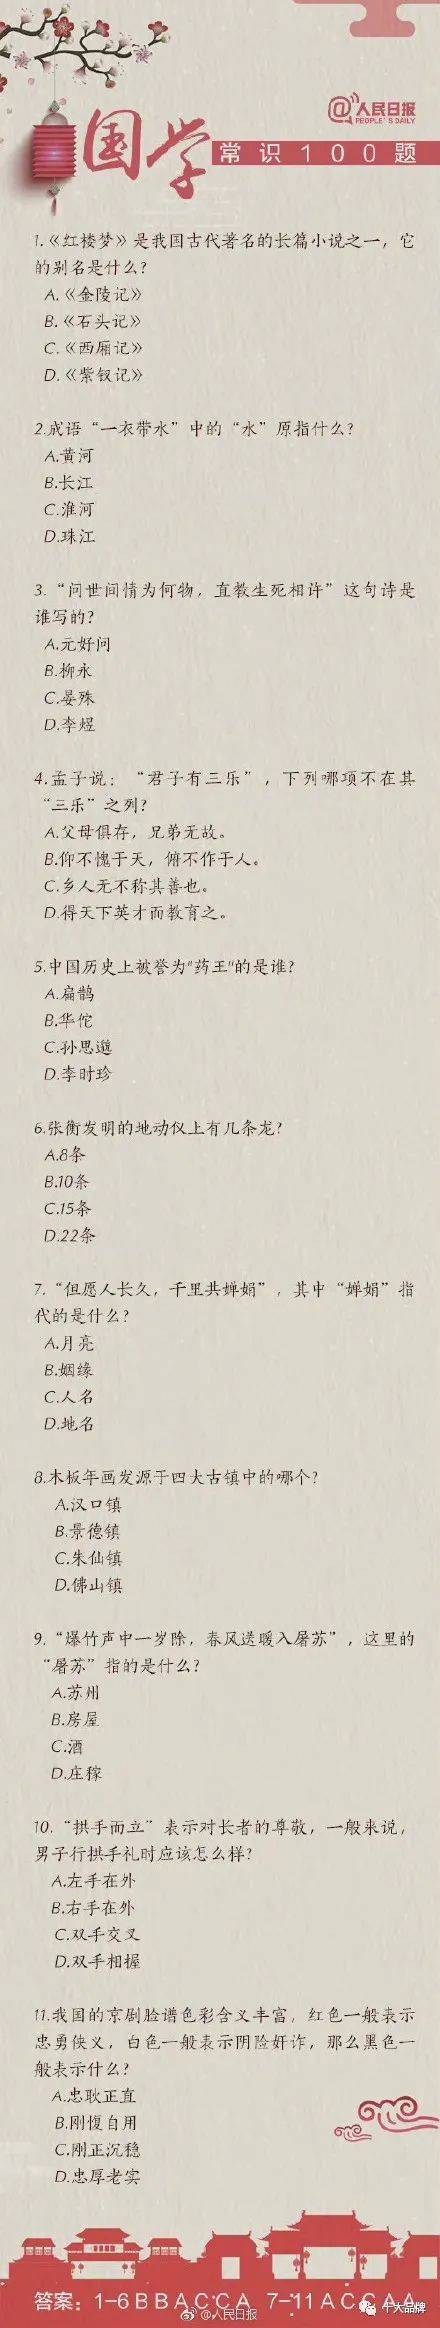 @人民日报
PEOPLE'S DAILY
国学
常识100题
1.《红楼梦》是我国古代著名的长篇小说之一，它
的别名是什么？
A.《金陵记》
B.《石头记》
C.《西厢记》
D.《紫钗记》
2.成语“一衣带水”中的“水”原指什么？
A.黄河
B.长江
C.淮河
D.珠江
3.“问世间情为何物，直教生死相许”这句诗是
谁写的？
A.元好问
B.柳永
C.晏殊
D.李煜
4.孟子说：“君子有三乐”，下列哪项不在其
“三乐”之列？
A.父母俱存，兄弟无故。
B.仰不愧于天，俯不怍于人。
C.乡人无不称其善也。
D.得天下英才而教育之。
5.中国历史上被誉为"药王"的是谁？
A.扁鹊
B.华佗
C.孙思邈
D.李时珍
6.张衡发明的地动仪上有几条龙？
A.8条
B.10条
C.15条
D.22条
7.“但愿人长久，千里共婵娟”，其中“婵娟”指
代的是什么？
A.月亮
B.姻缘
C.人名
D.地名
8.木板年画发源于四大古镇中的哪个？
A.汉口镇
B.景德镇
C.朱仙镇
D.佛山镇
9.“爆竹声中一岁除，春风送暖入屠苏”，这里的
“屠苏”指的是什么？
A.苏州
B.房屋
C.酒
D.庄稼
10.“拱手而立”表示对长者的尊敬，一般来说，
男子行拱手礼时应该怎么样？
A.左手在外
B.右手在外
C.双手交叉
D.双手相握
11.我国的京剧脸谱色彩含义丰富，红色一般表示
忠勇侠义，白色一般表示阴险奸诈，那么黑色一
般表示什么？
A.忠耿正直
B.刚愎自用
C.刚正沉稳
D.忠厚老实
答案：1-6BBACCA 7-11ACCAA
@人民日报
十大品牌